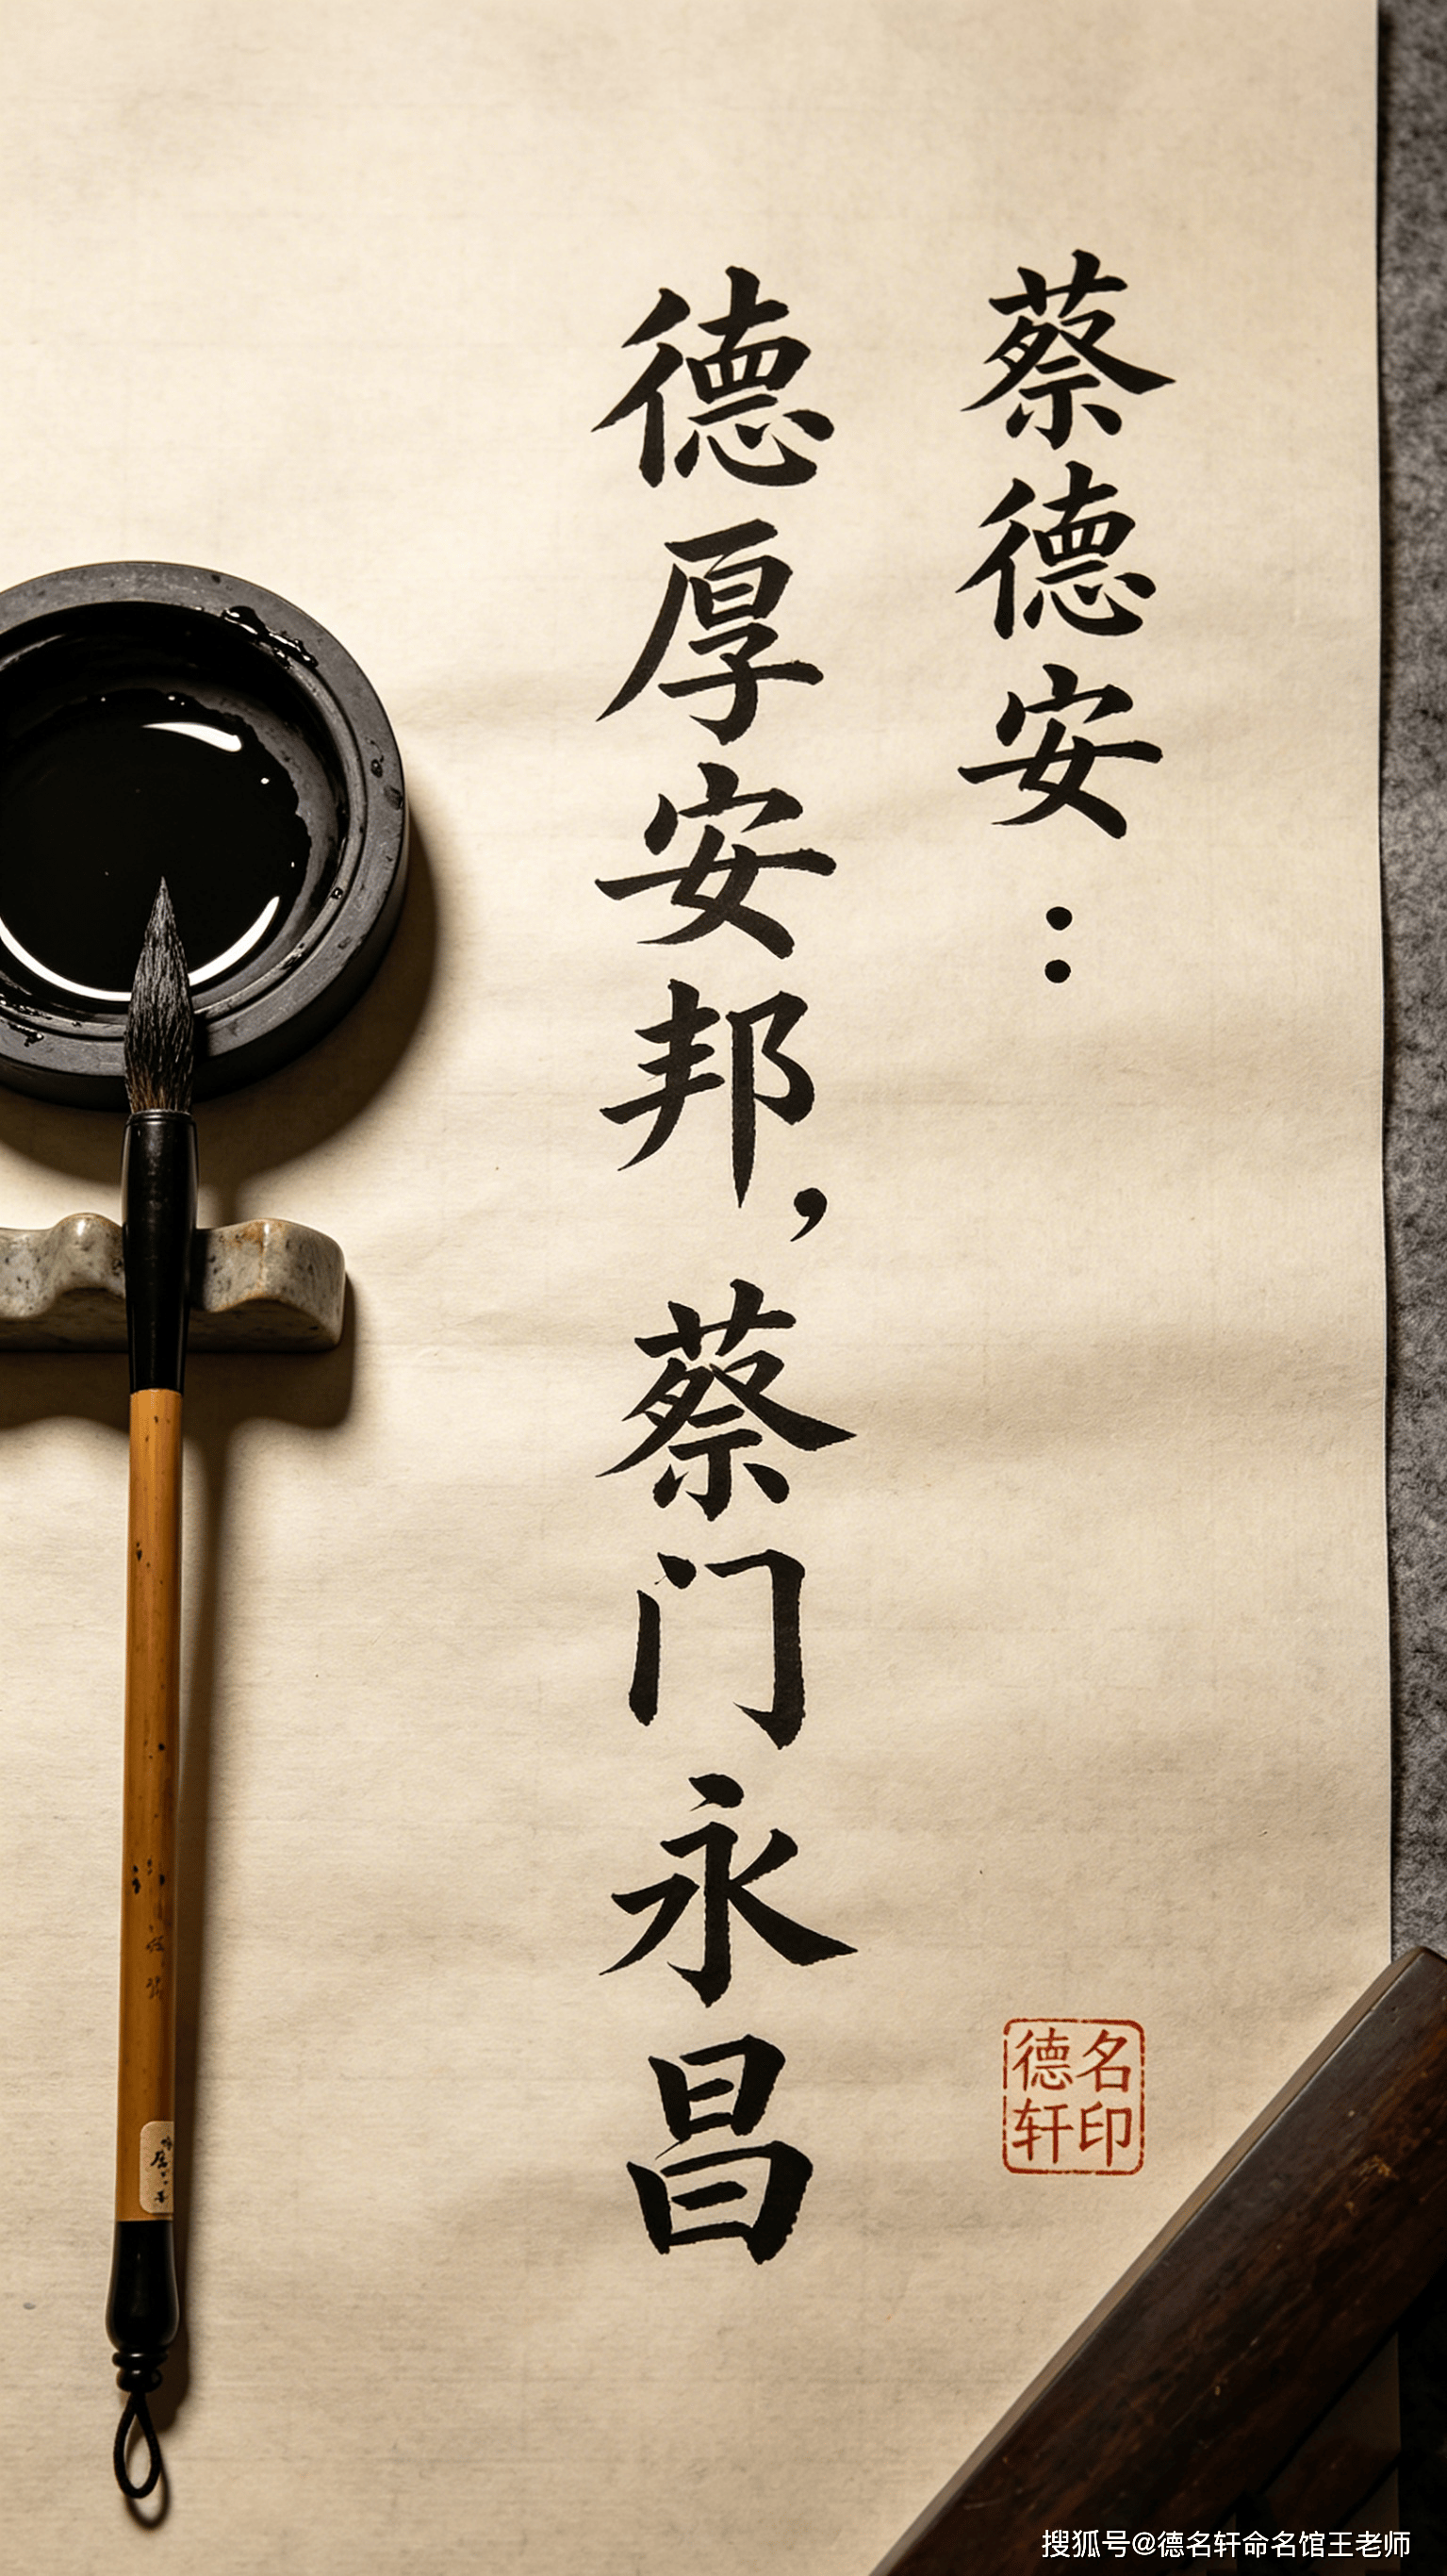 蔡德安：
德厚安邦，蔡门永昌
名印
德轩
搜狐号@德名轩命名馆王老师